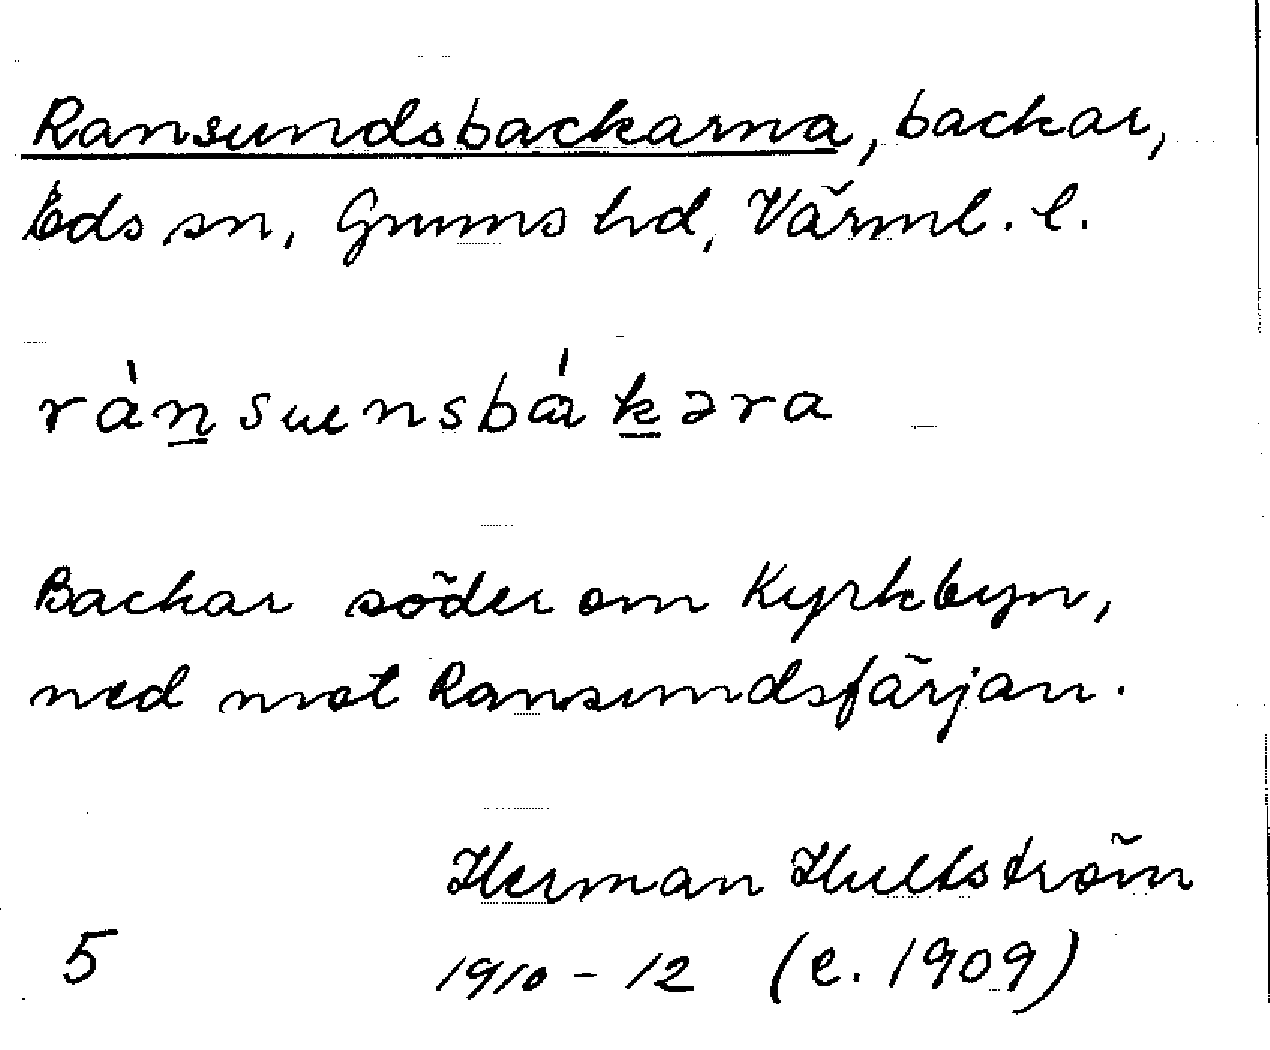 Ransundsbackarna, backar,
Eds sn, Grums hd, Värml. l.
rànsuensbákəra
Backar söder om Kyrkbyn,
ned mot Ransundsfärjan.
Herman Hultström
5 1910-12 (e. 1909)